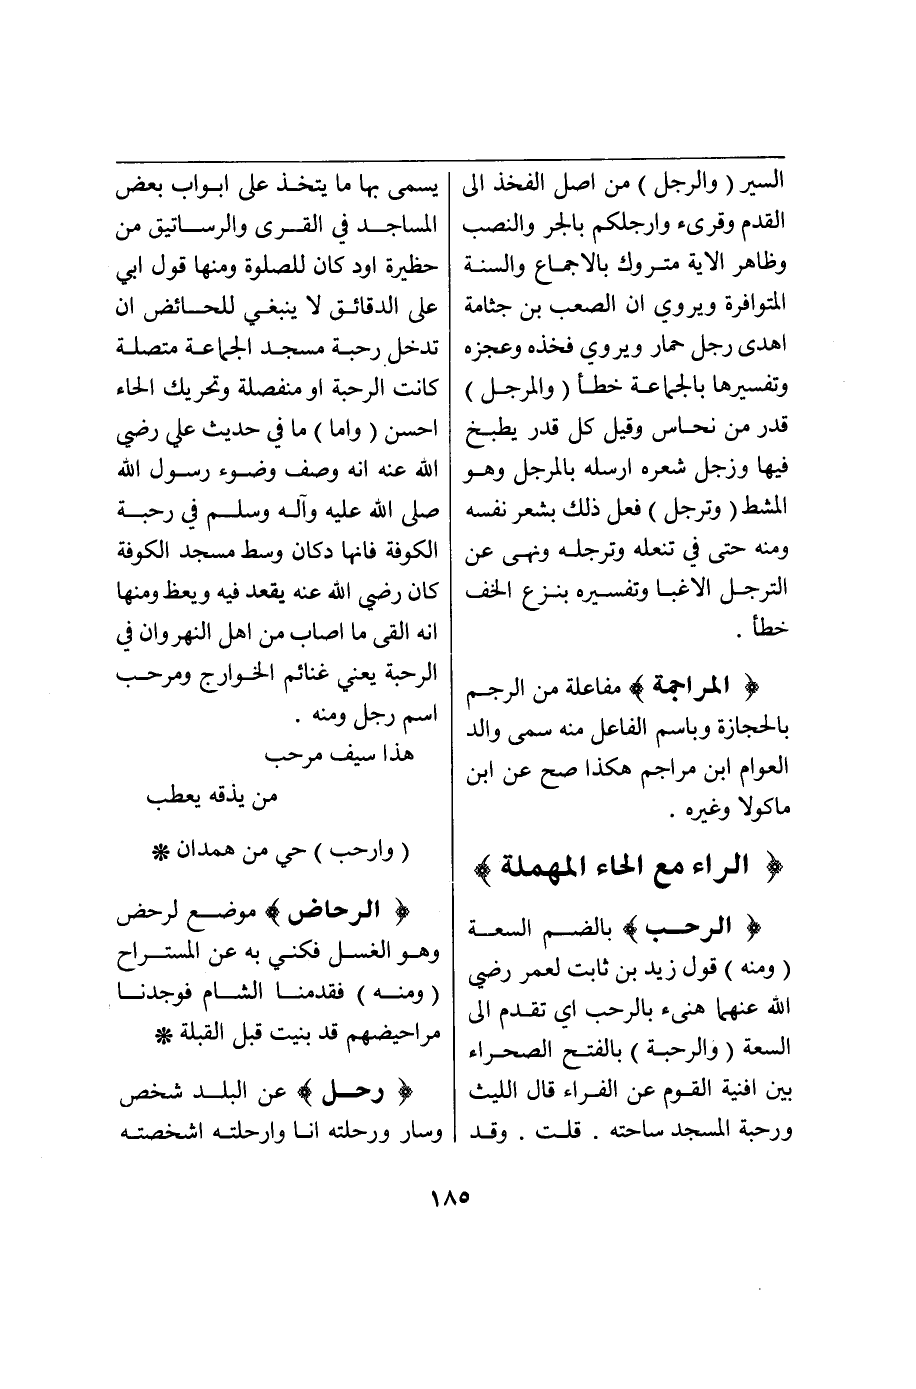 السير ( والرجل ) من اصل الفخذ الى
القدم وقرىء وارجلكم بالجر والنصب
وظاهر الاية متروك بالاجماع والسنة
المتوافرة ويروي ان الصعب بن جثامة
اهدى رجل حمار ويروي فخذه وعجزه
وتفسيرها بالجماعة خطأ ( والمرجل )
قدر من نحاس وقيل كل قدر يطبخ
فيها وزجل شعره ارسله بالمرجل وهو
المشط ( وترجل ) فعل ذلك بشعر نفسه
ومنه حتى في تنعله وترجله ونهى عن
الترجل الاغبا وتفسيره بنزع الخف
خطأ .
﴿ المراجمة ﴾ مفاعلة من الرجم
بالحجازة وباسم الفاعل منه سمى والد
العوام ابن مراجم هكذا صح عن ابن
ماكولا وغيره .
﴿ الراء مع الحاء المهملة ﴾
﴿ الرحب ﴾ بالضم السعة
( ومنه ) قول زيد بن ثابت لعمر رضي
الله عنهما هنىء بالرحب اي تقدم الى
السعة ( والرحبة ) بالفتح الصحراء
بين افنية القوم عن الفراء قال الليث
ورحبة المسجد ساحته . قلت . وقد
يسمى بها ما يتخذ على ابواب بعض
المساجد في القرى والرساتيق من
حظيرة اود كان للصلوة ومنها قول ابي
على الدقائق لا ينبغي للحائض ان
تدخل رحبة مسجد الجماعة متصلة
كانت الرحبة او منفصلة وتحريك الحاء
احسن ( واما ) ما في حديث علي رضي
الله عنه انه وصف وضوء رسول الله
صلى الله عليه وآله وسلم في رحبة
الكوفة فانها دكان وسط مسجد الكوفة
كان رضي الله عنه يقعد فيه ويعظ ومنها
انه القى ما اصاب من اهل النهروان في
الرحبة يعني غنائم الخوارج ومرحب
اسم رجل ومنه .
هذا سيف مرحب
من يذقه يعطب
( وارحب ) حي من همدان *
﴿ الرحاض ﴾ موضع لرحض
وهو الغسل فكني به عن المستراح
( ومنه ) فقدمنا الشام فوجدنا
مراحيضهم قد بنيت قبل القبلة *
﴿ رحل ﴾ عن البلد شخص
وسار ورحلته انا وارحلته اشخصته
١٨٥